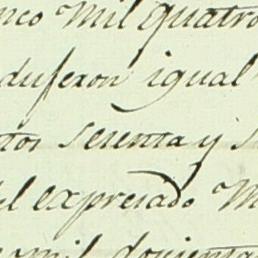 nco Mil quatro
dujeron igual
tos sesenta y s
el expresado M
e mil docienta